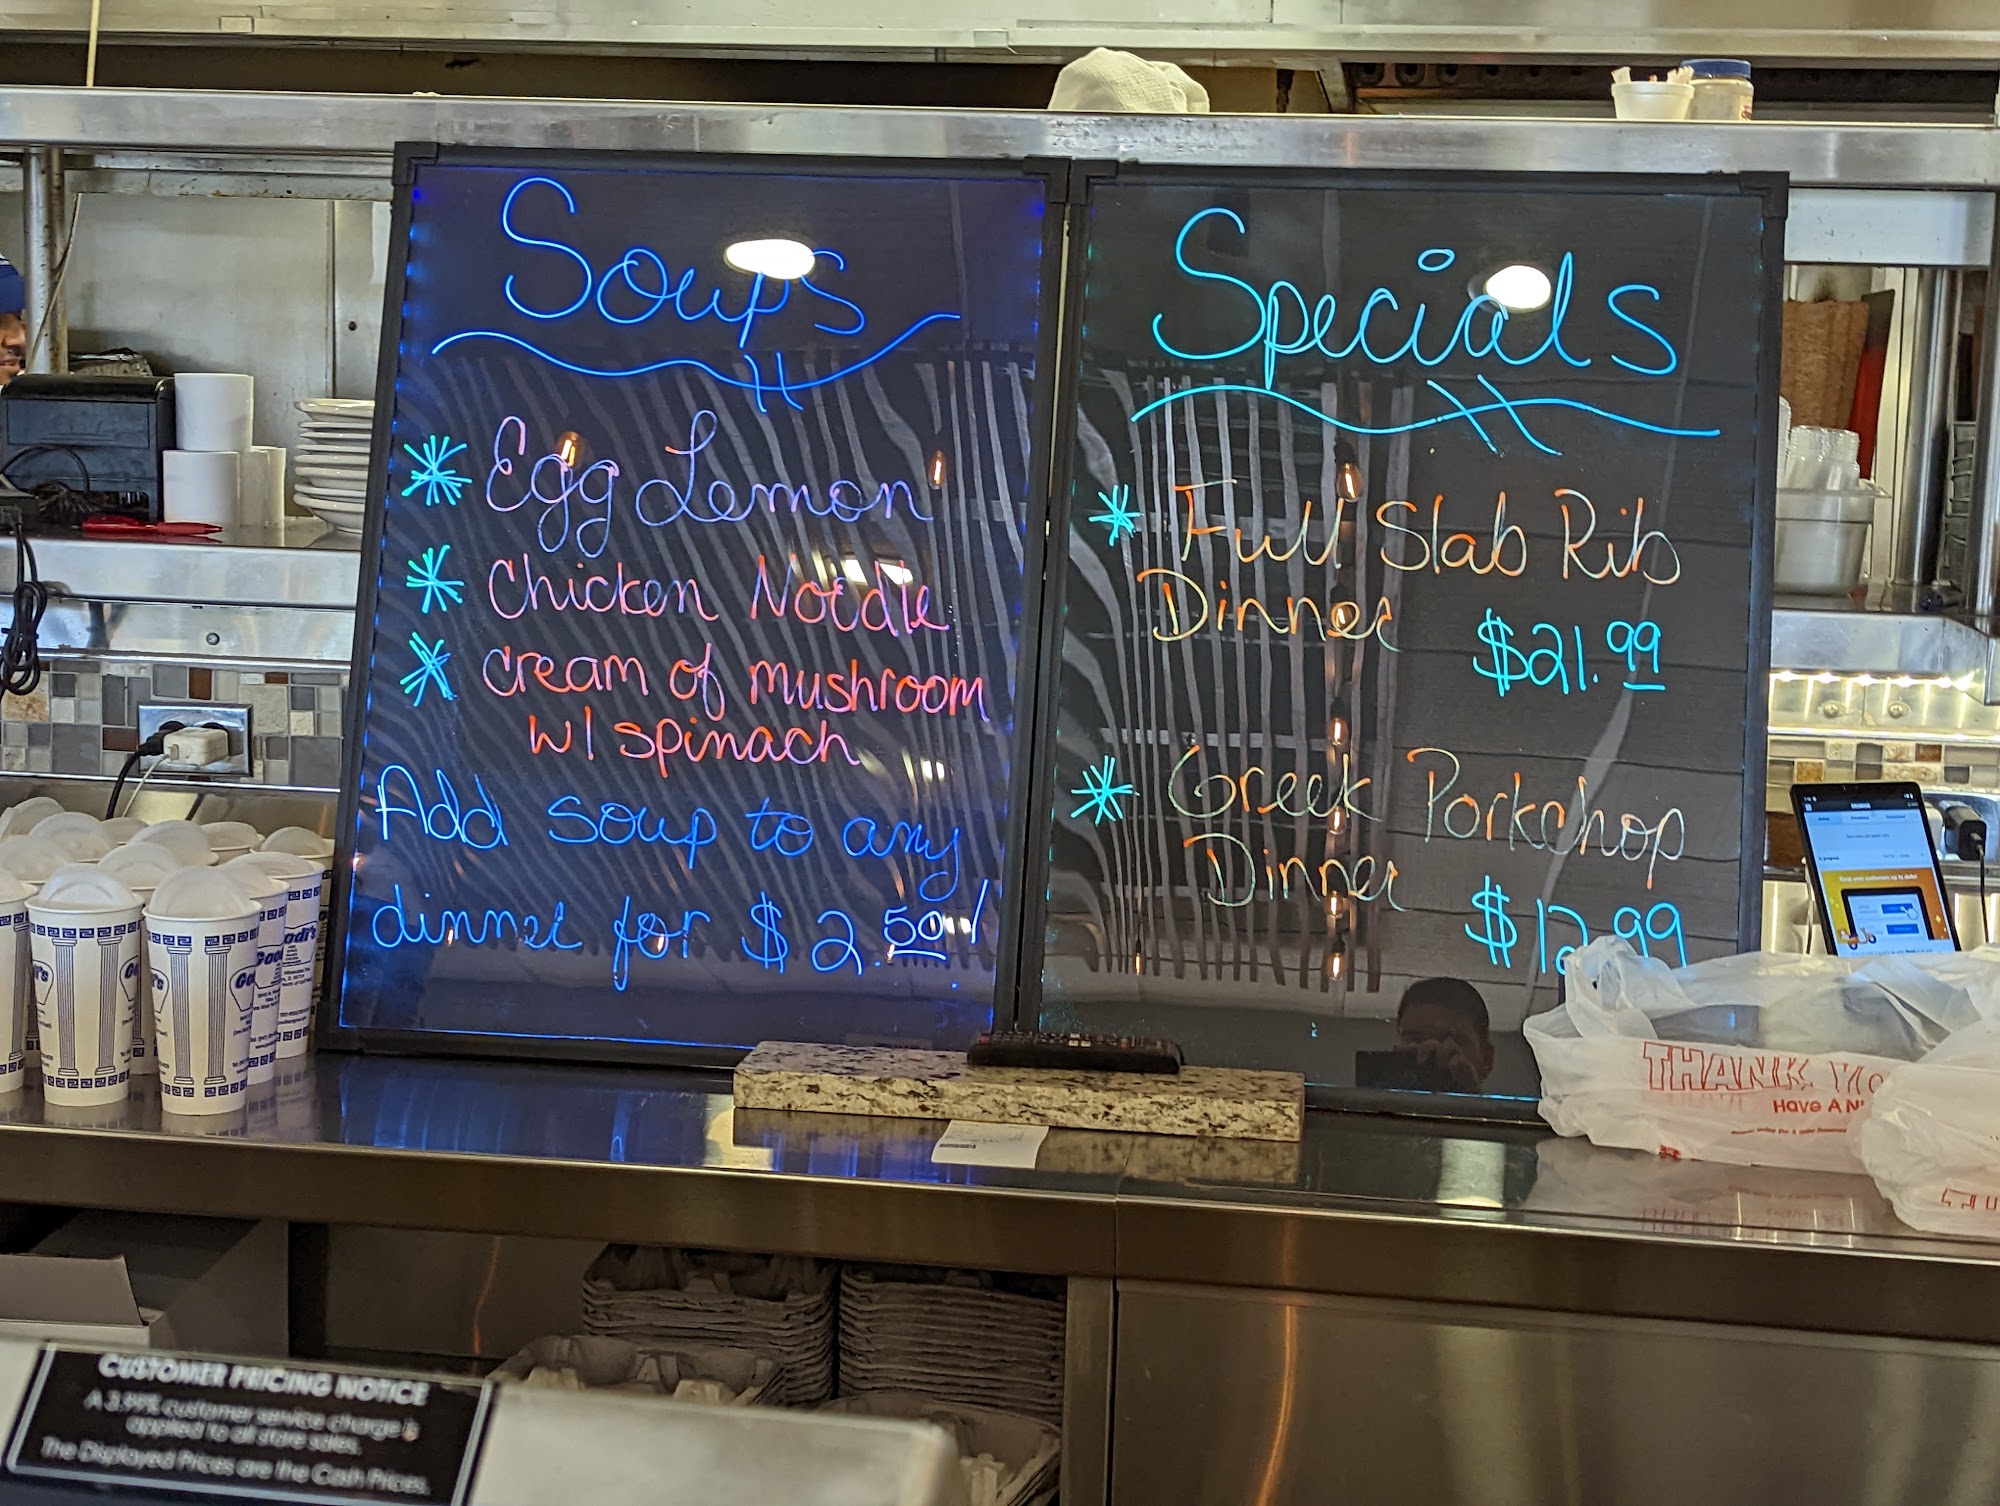 Soups
* Egg Lemon
* Chicken Noodle
* cream of mushroom
w/ spinach
Add soup to any
dinner for $2.50!
Specials
* Full Slab Rib
Dinner $21.99
* Greek Porkchop
Dinner $12.99
THANK YO
Have A NI
CUSTOMER PRICING NOTICE
A 3.99% customer service charge is
applied to all store sales.
The Displayed Prices are the Cash Prices.